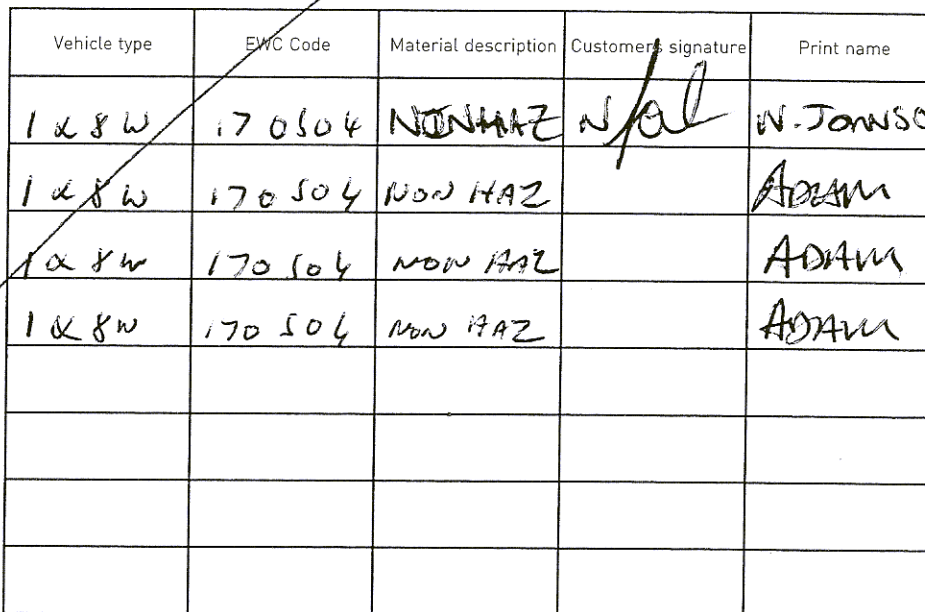 Vehicle type EWC Code Material description Customers signature Print name
1 x 8 W 170504 NON HAZ N. JOHNSO
1 x 8 W 170504 NON HAZ ADAM
1 x 8 W 170504 NON HAZ ADAM
1 x 8 W 170504 NON HAZ ADAM